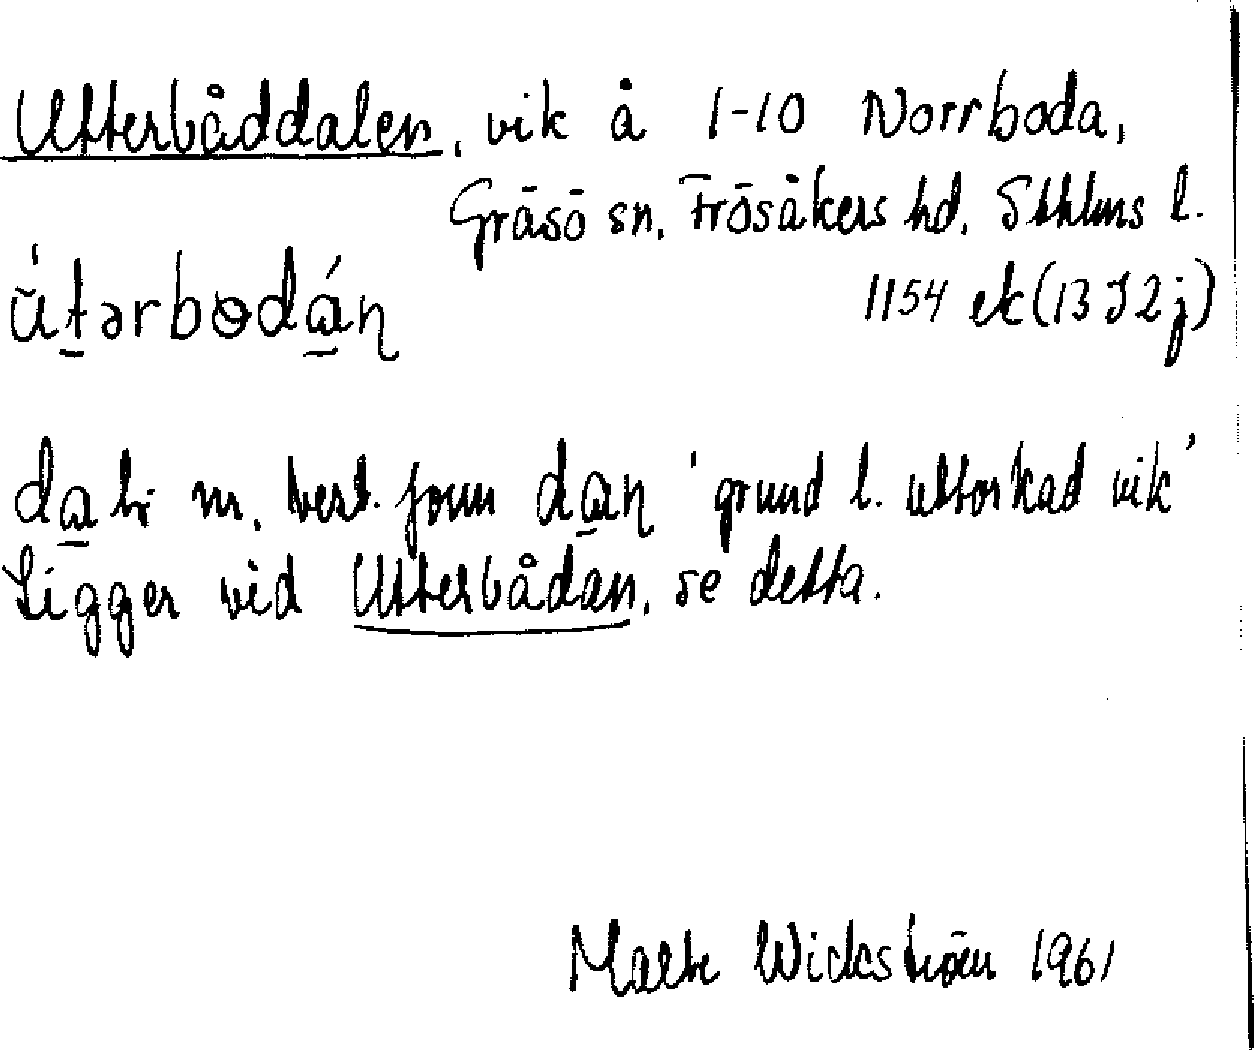 Utterbåddalen, vik å 1-10 Norrboda,
Gräsö sn. Frösåkers hd. Sthlms l.
1154 ek (13 I 2 j)
m. best. form 'grund l. uttorkad vik'
Ligger vid Utterbådan, se detta.
Malte Wickström 1961